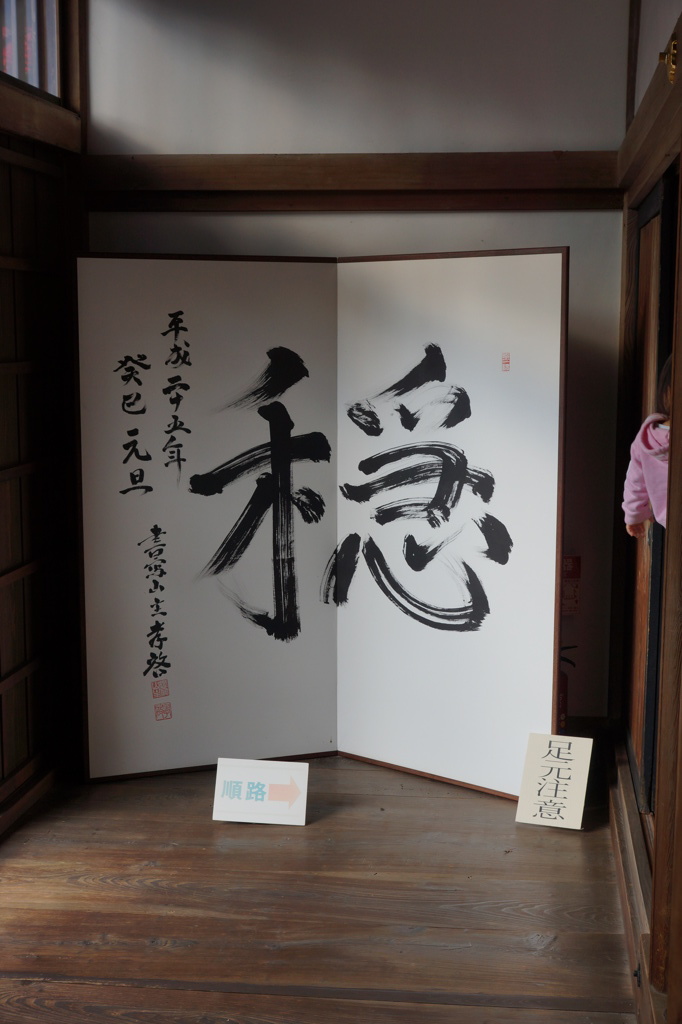 穏
平成二十五年
癸巳元旦
書写山主孝啓
順路
足元注意